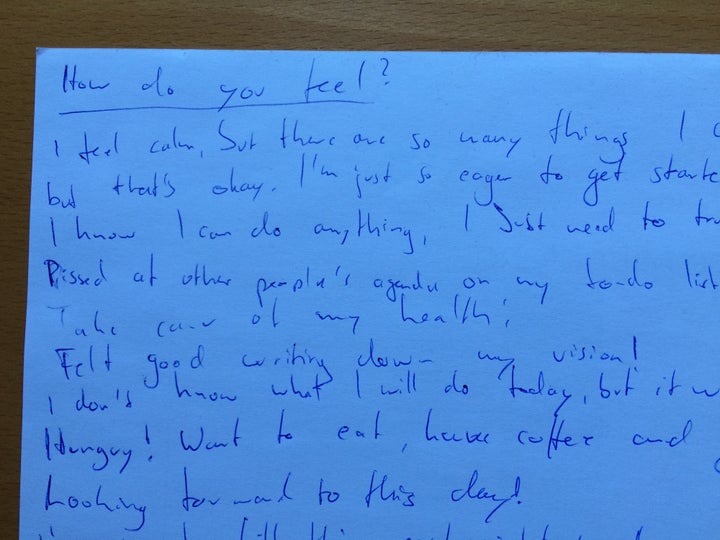 How do you feel?
I feel calm, but there are so many things I
but that's okay. I'm just so eager to get starte
I know I can do anything, I just need to tru
Pissed at other people's agenda on my to-do list
Take care of my health!
Felt good writing down my vision!
I don't know what I will do today, but it w
Hungry! Want to eat, have coffee and
Looking forward to this day!